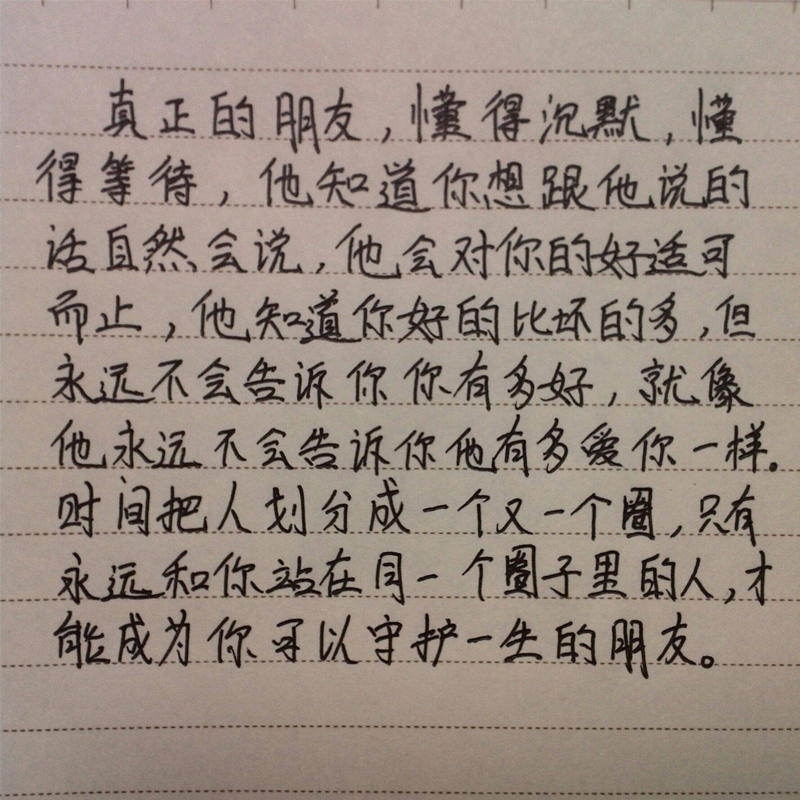 真正的朋友，懂得沉默，懂
得等待，他知道你想跟他说的
话自然会说，他会对你的好适可
而止，他知道你好的比坏的多，但
永远不会告诉你你有多好，就像
他永远不会告诉你他有多爱你一样。
时间把人划分成一个又一个圈，只有
永远和你站在同一个圈子里的人，才
能成为你可以守护一生的朋友。